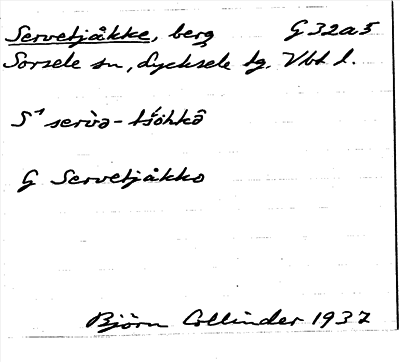 Servetjåkke, berg G 32a5
Sorsele sn, Lycksele lg. Vbt l.
S¹ serv̀ə-tśåhkə̑
G Servetjåkko
Björn Collinder 1937